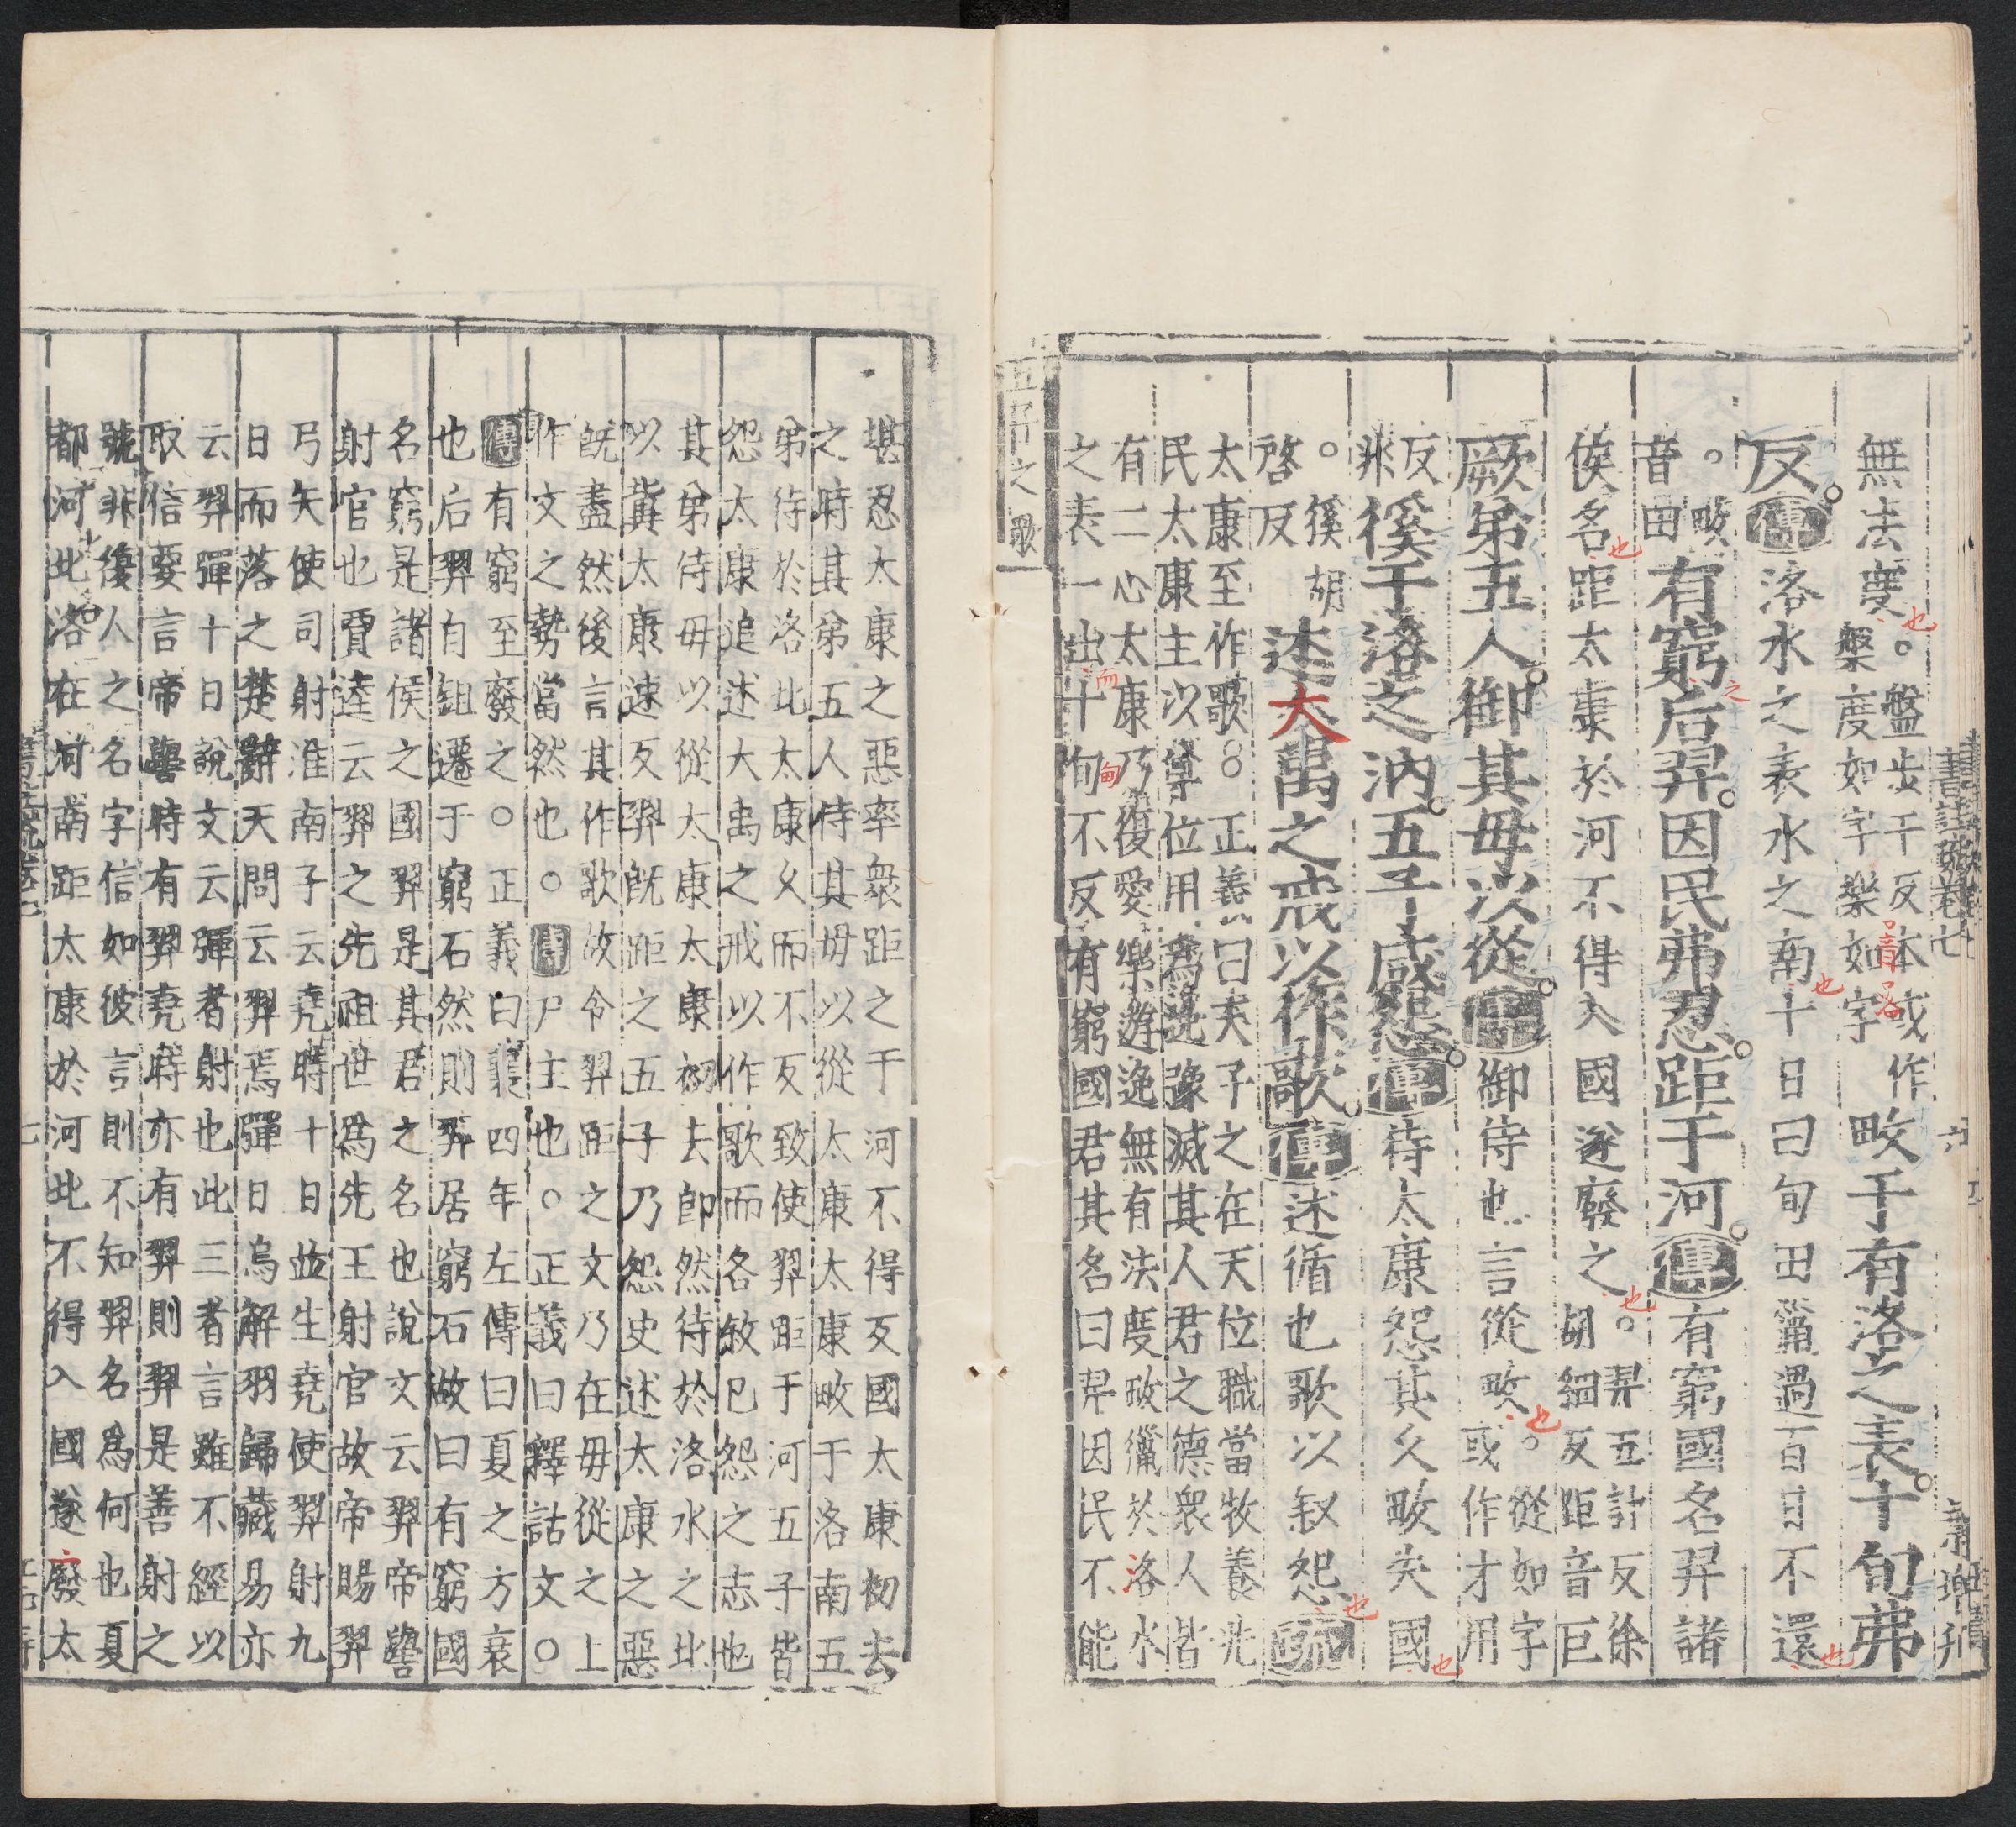 無法度。盤步干反本或作
槃度如字樂如字畋于有洛之表十旬弗
反傳洛水之表水之南十日曰旬田獵過百日不還
。畋
音田有窮后羿因民弗忍距于河傳有窮國名羿諸
侯名距太康於河不得入國遂廢之。羿五計反徐
胡細反距音巨
厥弟五人御其母以從傳御侍也言從畋。從如字
或作才用
反
非徯于洛之汭五子咸怨傳待太康怨其久畋失國
。徯胡
啓反述大禹之戒以作歌傳述循也歌以叙怨疏
太康至作歌○正義曰天子之在天位職當牧養兆
民太康主以尊位用為逸豫滅其人君之德衆人皆
有二心太康乃復愛樂遊逸無有法度畋獵於洛水
之表一出十旬不反有窮國君其名曰羿因民不能
五子之歌
堪忍太康之惡率衆距之于河不得反國太康初去
之時其弟五人侍其母以從太康太康畋于洛南五
弟待於洛北太康久而不反致使羿距于河五子皆
怨太康追述大禹之戒以作歌而各敘已怨之志也
其弟侍母以從太康太康初去即然待於洛水之北
以冀太康速反羿既距之五子乃怨史述太康之惡
既盡然後言其作歌故令羿距之文乃在母從之上
作文之勢當然也○傳尸主也○正義曰釋詁文○
傳有窮至廢之○正義曰襄四年左傳曰夏之方衰
也后羿自鉏遷于窮石然則羿居窮石故曰有窮國
名窮是諸侯之國羿是其君之名也說文云羿帝嚳
射官也賈逵云羿之先祖世為先王射官故帝賜羿
弓矢使司射淮南子云堯時十日並生堯使羿射九
日而落之楚辭天問云羿焉彈日烏解羽歸藏易亦
云羿彈十日說文云彈者射也此三者言雖不經以
取信要言帝嚳時有羿堯時亦有羿則羿是善射之
號非復人之名字信如彼言則不知羿名為何也夏
都河北洛在河南距太康於河北不得入國遂廢太